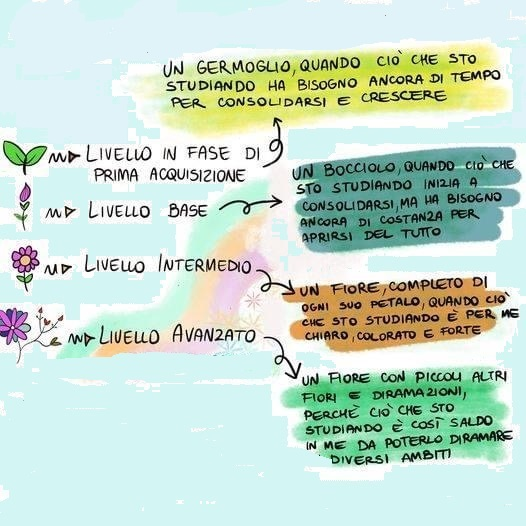 UN GERMOGLIO, QUANDO CIÒ CHE STO
STUDIANDO HA BISOGNO ANCORA DI TEMPO
PER CONSOLIDARSI E CRESCERE
LIVELLO IN FASE DI
PRIMA ACQUISIZIONE
UN BOCCIOLO, QUANDO CIÒ CHE
STO STUDIANDO INIZIA A
CONSOLIDARSI, MA HA BISOGNO
ANCORA DI COSTANZA PER
APRIRSI DEL TUTTO
LIVELLO BASE
LIVELLO INTERMEDIO
UN FIORE, COMPLETO DI
OGNI SUO PETALO, QUANDO CIÒ
CHE STO STUDIANDO È PER ME
CHIARO, COLORATO E FORTE
LIVELLO AVANZATO
UN FIORE CON PICCOLI ALTRI
FIORI E DIRAMAZIONI,
PERCHÈ CIÒ CHE STO
STUDIANDO È COSÌ SALDO
IN ME DA POTERLO DIRAMARE
DIVERSI AMBITI